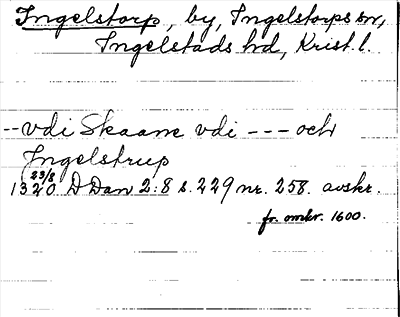 Ingelstorp, by, Ingelstorps sn,
Ingelstads hd, Krist. l.
-- vdi Skaane vdi --- och
Ingelstrup
23/8
1320 DDan 2:8 s. 229 nr. 258. avskr.
fr. omkr. 1600.